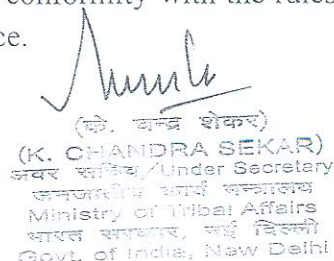 conformity with the rules
ce.
(के. चन्द्र शेकर)
(K. CHANDRA SEKAR)
अवर सचिव/Under Secretary
जनजातीय कार्य मन्त्रालय
Ministry of Tribal Affairs
भारत सरकार, नई दिल्ली
Govt. of India, New Delhi